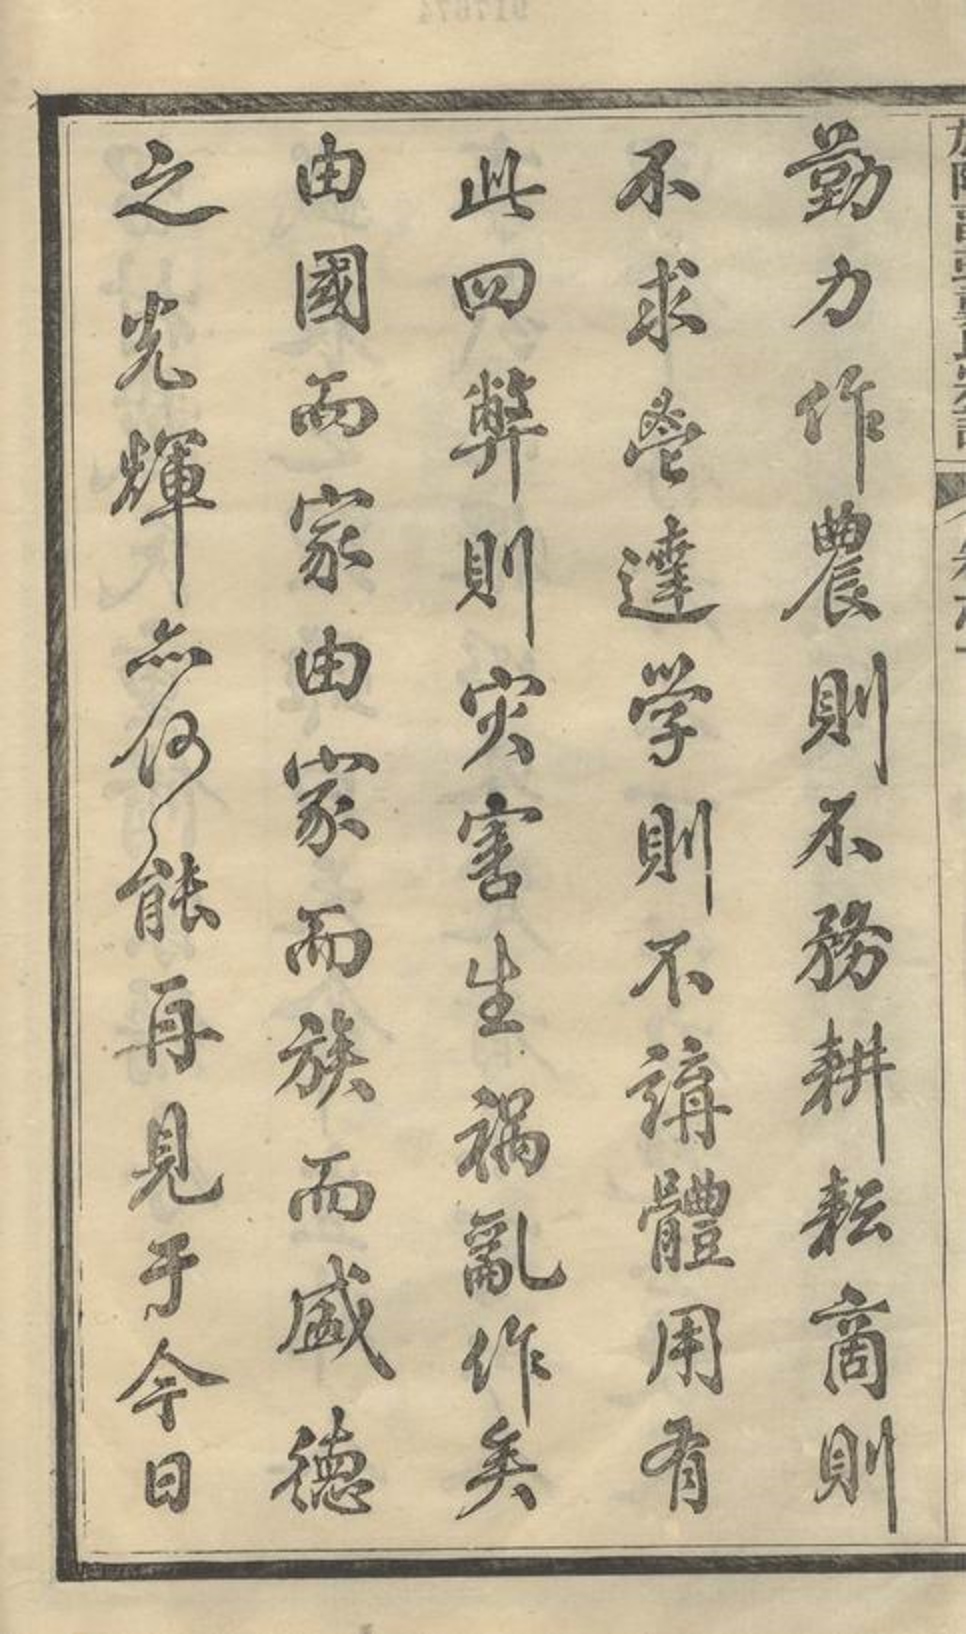 勤力作農則不務耕耘商則
不求營達学則不講體用有
此四弊則灾害生禍亂作矣
由國而家由家而族而盛德
之光輝亦何能再見于今日